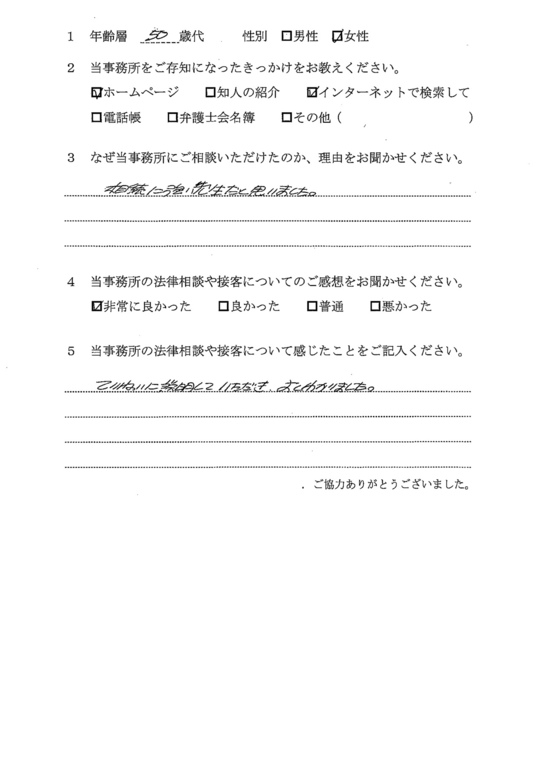 1 年齢層 50 歳代 性別 □男性 ☑女性
2 当事務所をご存知になったきっかけをお教えください。
☑ホームページ □知人の紹介 ☑インターネットで検索して
□電話帳 □弁護士会名簿 □その他( )
3 なぜ当事務所にご相談いただけたのか、理由をお聞かせください。
相続に強い先生だと思いました。
4 当事務所の法律相談や接客についてのご感想をお聞かせください。
☑非常に良かった □良かった □普通 □悪かった
5 当事務所の法律相談や接客について感じたことをご記入ください。
ていねいに説明していただき、よくわかりました。
ご協力ありがとうございました。